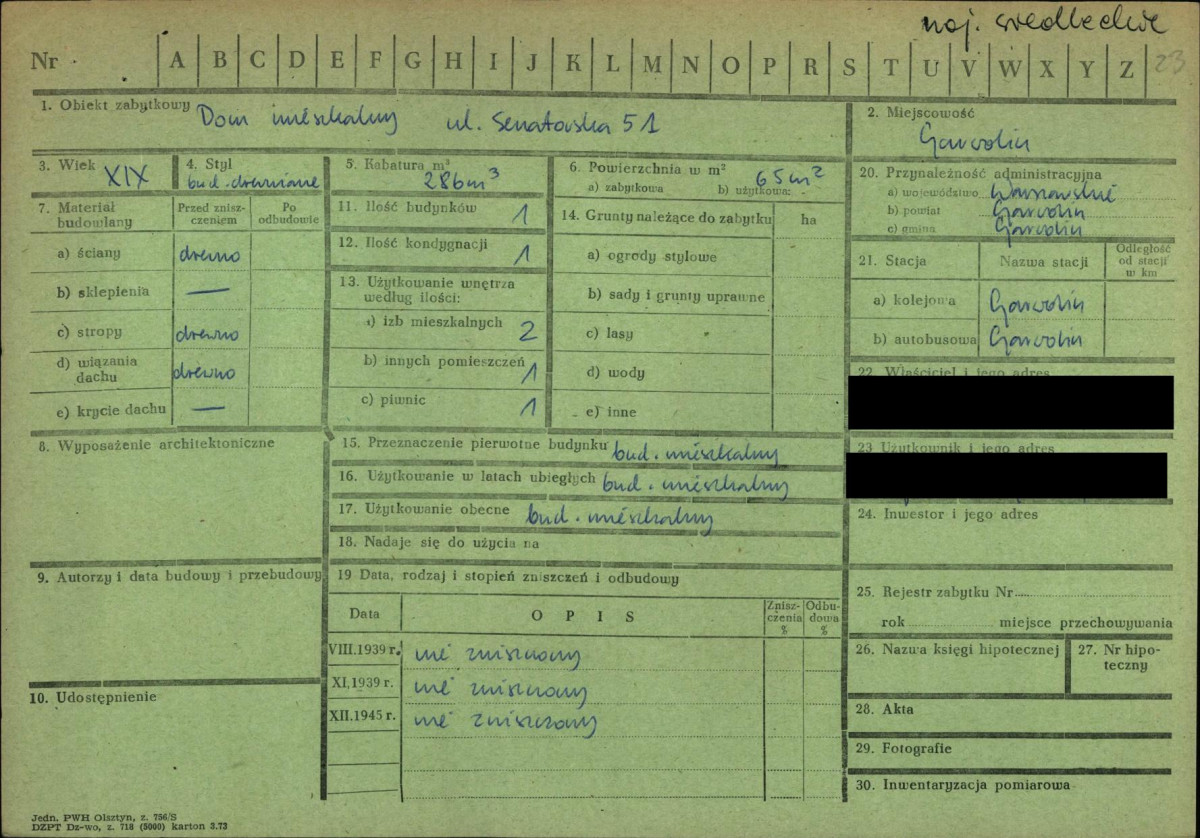 woj. siedleckie
Nr A B C D E F G H I J K L M N O P R S T U V W X Y Z 23
1. Obiekt zabytkowy Dom mieszkalny ul. Senatorska 51
2. Miejscowość
Garwolin
3. Wiek XIX
4. Styl
bud. drewniane
5. Kabatura m³
286m³
6. Powierzchnia w m²
a) zabytkowa b) użytkowa: 65m²
20. Przynależność administracyjna
a) województwo Warszawskie
b) powiat Garwolin
c) gmina Garwolin
7. Materiał budowlany
Przed zniszczeniem
Po odbudowie
a) ściany drewno
b) sklepienia —
c) stropy drewno
d) wiązania dachu drewno
e) krycie dachu —
11. Ilość budynków 1
12. Ilość kondygnacji 1
13. Użytkowanie wnętrza
według ilości:
a) izb mieszkalnych 2
b) innych pomieszczeń 1
c) piwnic 1
14. Grunty należące do zabytku ha
a) ogrody stylowe
b) sady i grunty uprawne
c) lasy
d) wody
e) inne
21. Stacja Nazwa stacji Odległość od stacji w km
a) kolejowa Garwolin
b) autobusowa Garwolin
22. Właściciel i jego adres
23 Użytkownik i jego adres
24. Inwestor i jego adres
8. Wyposażenie architektoniczne
15. Przeznaczenie pierwotne budynku bud. mieszkalny
16. Użytkowanie w latach ubiegłych bud. mieszkalny
17. Użytkowanie obecne bud. mieszkalny
18. Nadaje się do użycia na
9. Autorzy i data budowy i przebudowy
19 Data, rodzaj i stopień zniszczeń i odbudowy
Data OPIS Zniszczenia % Odbudowa %
VIII.1939 r. nie zniszczony
XI,1939 r. nie zniszczony
XII.1945 r. nie zniszczony
10. Udostępnienie
25. Rejestr zabytku Nr
rok miejsce przechowywania
26. Nazwa księgi hipotecznej
27. Nr hipoteczny
28. Akta
29. Fotografie
30. Inwentaryzacja pomiarowa
Jedn. PWH Olsztyn, z. 756/S
DZPT Dz-wo, z. 718 (5000) karton 3.73